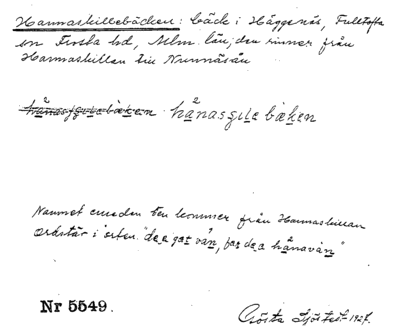 Hannaskillebäcken: bäck i Häggenäs, Fulltofta
sn Frosta hd, Mlm. län; den rinner från
Hannaskillan till Nunnäsån
hånasgɩlebæken hånasgɩlebæken
Namnet emedan den kommer från Hannaskillan
Ordstäv i orten: "dea got vån, for dea hånavån"
Nr 5549.
Gösta 1927.